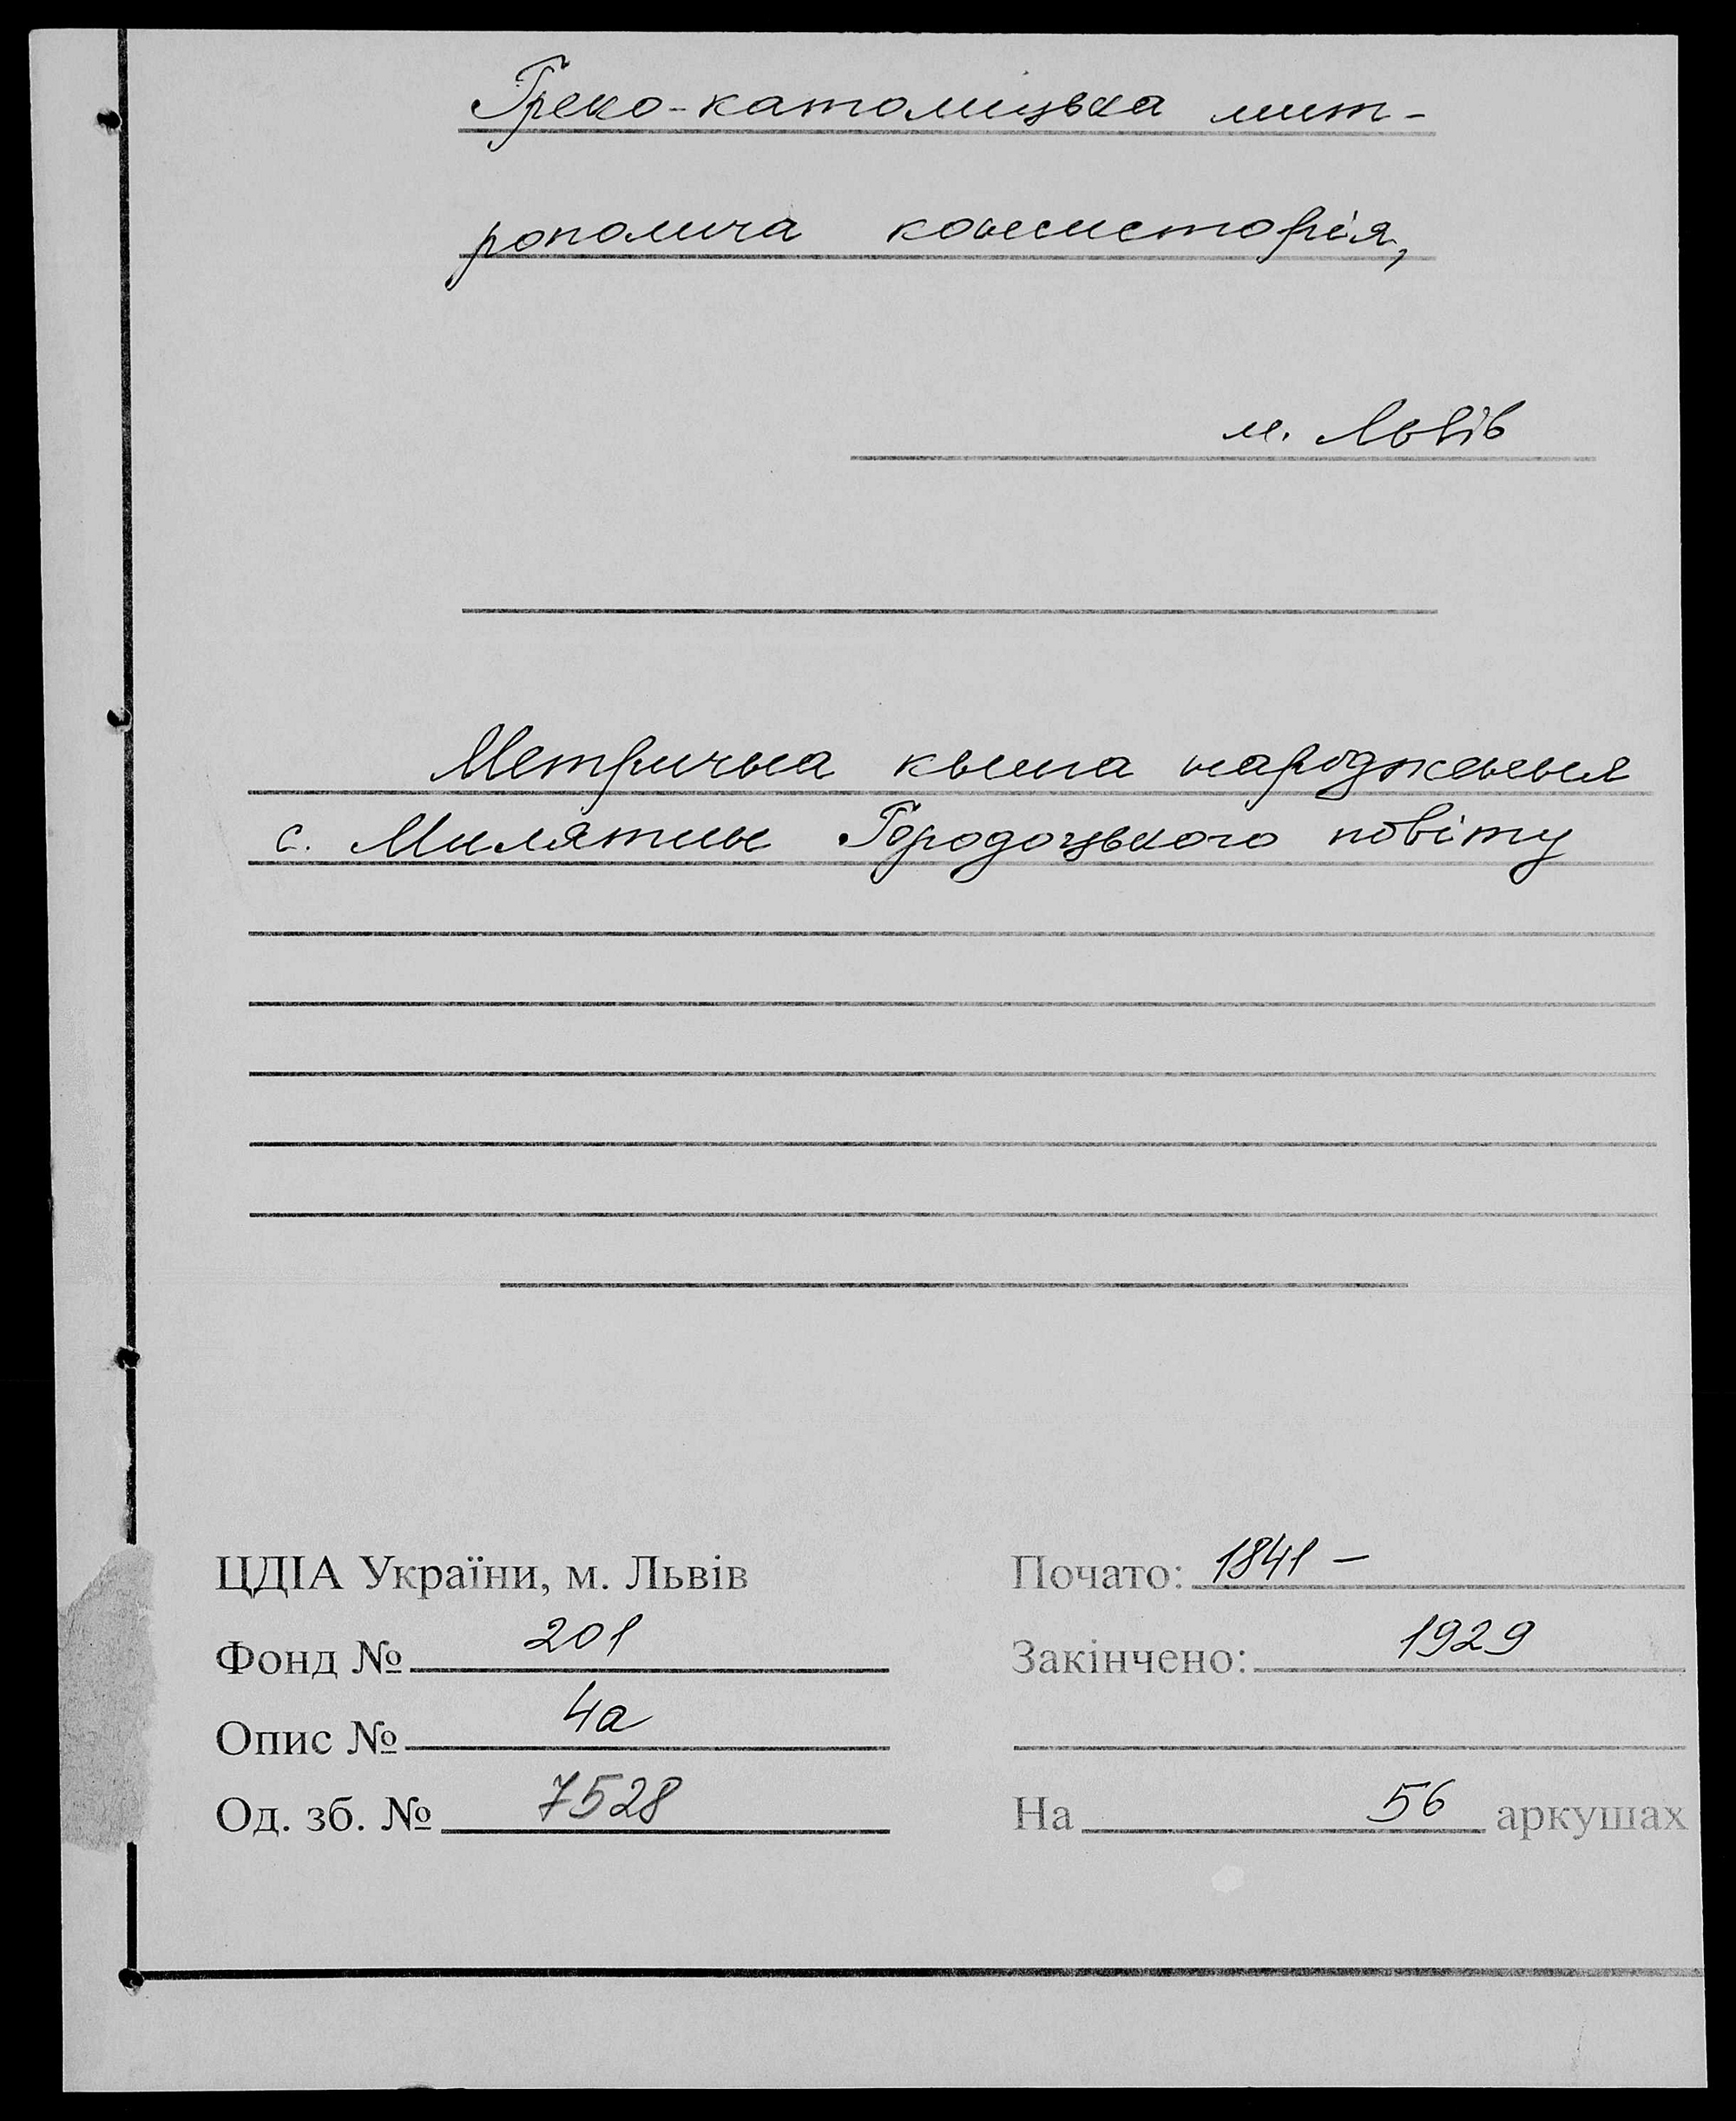 Греко-католицька мит-
рополича консисторія,
м. Львів
Метрична книга народження
с. Милятин Городоцького повіту
ЦДІА України, м. Львів
Фонд № 201
Опис № 4а
Од. зб. № 7528
Почато: 1841 –
Закінчено: 1929
На 56 аркушах